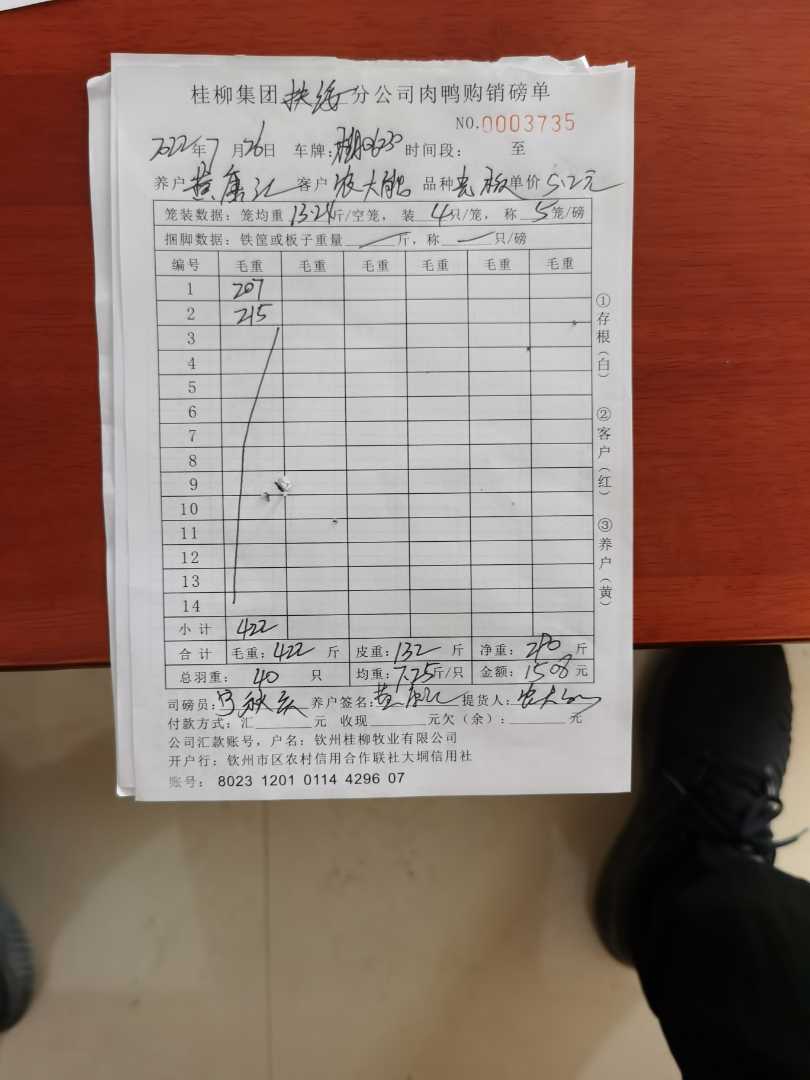 桂柳集团扶绥分公司肉鸭购销磅单
NO.0003735
2022年7月26日 车牌: 时间段: 至
养户 黄康江 客户 农大 品种 单价 5.2元
笼装数据: 笼均重 13.24斤/空笼, 装 4只/笼, 称 5笼/磅
捆脚数据: 铁筐或板子重量 斤, 称 只/磅
编号 毛重 毛重 毛重 毛重 毛重 毛重
1 207
2 215
3
4
5
6
7
8
9
10
11
12
13
14
小计 422
合计 毛重: 422 斤 皮重: 132 斤 净重: 290 斤
总羽重: 40 只 均重: 7.25斤/只 金额: 1508元
司磅员: 养户签名: 黄康江 提货人: 农大
付款方式: 汇 元 收现 元欠(余): 元
公司汇款账号, 户名: 钦州桂柳牧业有限公司
开户行: 钦州市区农村信用合作联社大垌信用社
账号: 8023 1201 0114 4296 07
①存根(白)
②客户(红)
③养户(黄)